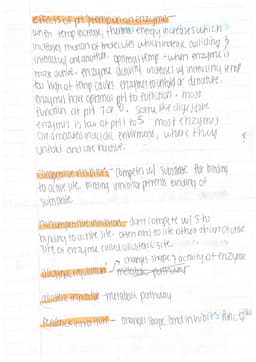 effects of pH/temp on an enzyme
when temp increase, thermal energy increases which
increases motion of molecules which increase colliding &
interacting one another. optimal temp - when enzyme is
most active. enzyme activity increases w/ increasing temp
too high of temp causes enzymes to unfold or denature.
enzymes have optimal pH to function. most
function at pH 7 or 8. some like digestive
enzymes is low of pH 1 to 5. most enzymes
are denatured in acidic enviorment, where they
unfold and are inactive.
competitive inhibitors - competes w/ substrate for binding
to active site. binding inhibitor prevents binding of
substrate
noncompetitive inhibitors - dont compete w/ S to
binding to active site. often bind to site other than active
site of enzyme called allosteric site.
allosteric regulation changes shape & activity of enzyme
metabolic pathway
allosteric inhibitor - metabolic pathway
inhibition - changes shape and inhibits function